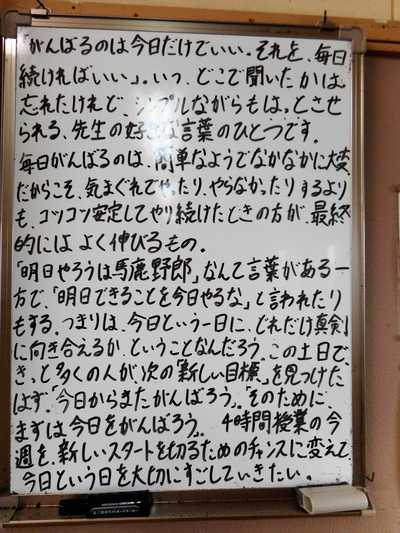 「がんばるのは今日だけでいい。それを、毎日
続ければいい」。いつ、どこで聞いたかは
忘れたけれど、シンプルながらもはっとさせ
られる、先生の好きな言葉のひとつです。
毎日がんばるのは、簡単なようでなかなかに大変
だからこそ、気まぐれでやったり、やらなかったりするより
も、コツコツ安定してやり続けたときの方が、最終
的にはよく伸びるもの。
「明日やろうは馬鹿野郎」なんて言葉がある一
方で、「明日できることを今日やるな」と言われたり
もする。つまりは、今日という一日に、どれだけ真剣
に向き合えるか、ということなんだろう。この土日で、
きっと多くの人が、次の「新しい目標」を見つけた
はず。「今日からまたがんばろう」。そのために、
まずは今日をがんばろう。 4時間授業の今
週を、新しいスタートを切るためのチャンスに変えて、
今日という日を大切にすごしていきたい。